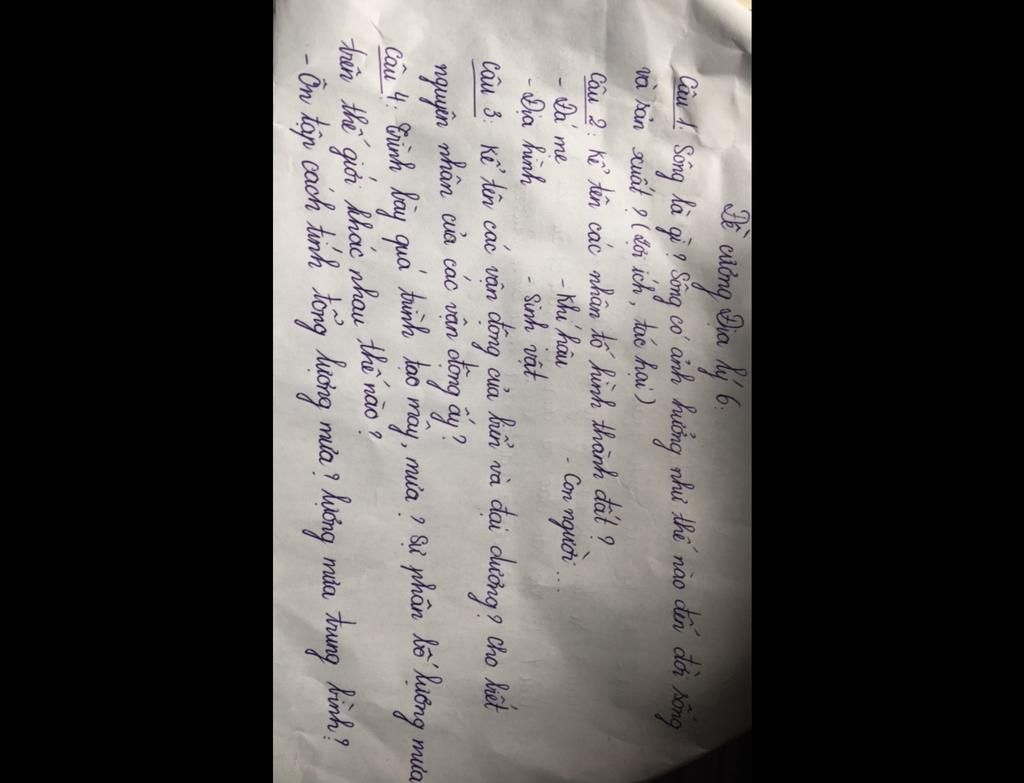 Đề cương Địa lý 6.
Câu 1: Sông là gì? Sông có ảnh hưởng như thế nào đến đời sống
và sản xuất? (Lợi ích, tác hại)
Câu 2: Kể tên các nhân tố hình thành đất?
- Đá mẹ - Khí hậu - Con người...
- Địa hình - Sinh vật
Câu 3: Kể tên các vận động của biển và đại dương? Cho biết
nguyên nhân của các vận động ấy?
Câu 4: Trình bày quá trình tạo mây, mưa? Sự phân bố lượng mưa
trên thế giới khác nhau thế nào?
- Ôn tập cách tính tổng lượng mưa? lượng mưa trung bình?